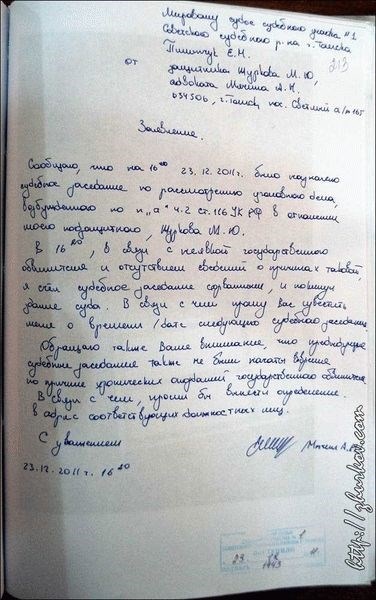 Мировому судье судебного участка №1
Советского судебного р-на г. Томска
Пшинчук Е.Н.
213
от защитника Журкова М.Ю,
адвоката Мячина А.К
634506, г. Томск пос. Светлый а/я 165
Заявление.
Сообщаю, что на 16⁰⁰ 23.12.2011г. было назначено
судебное заседание по рассмотрению уголовного дела,
возбужденного по п „а" ч.2 ст.116 УК РФ в отношении
моего подзащитного, Журкова М.Ю.
В 16²⁰, в связи с неявкой государственного
обвинителя и отсутствием сведений о причинах таковой,
я счёл судебное заседание сорванным, и покинул
здание суда. В связи с чем прошу вас известить
меня о времени /дате следующего судебного заседания
Обращаю также Ваше внимание, что предыдущие
судебные заседания также не были начаты вовремя
по причине хронических опозданий государственного обвинителя
В связи с чем, просил бы вынести определение
в адрес соответствующих должностных лиц.
С уважением
Мячин А.К
23.12.2011г. 16²⁰
http://zhurkov.com